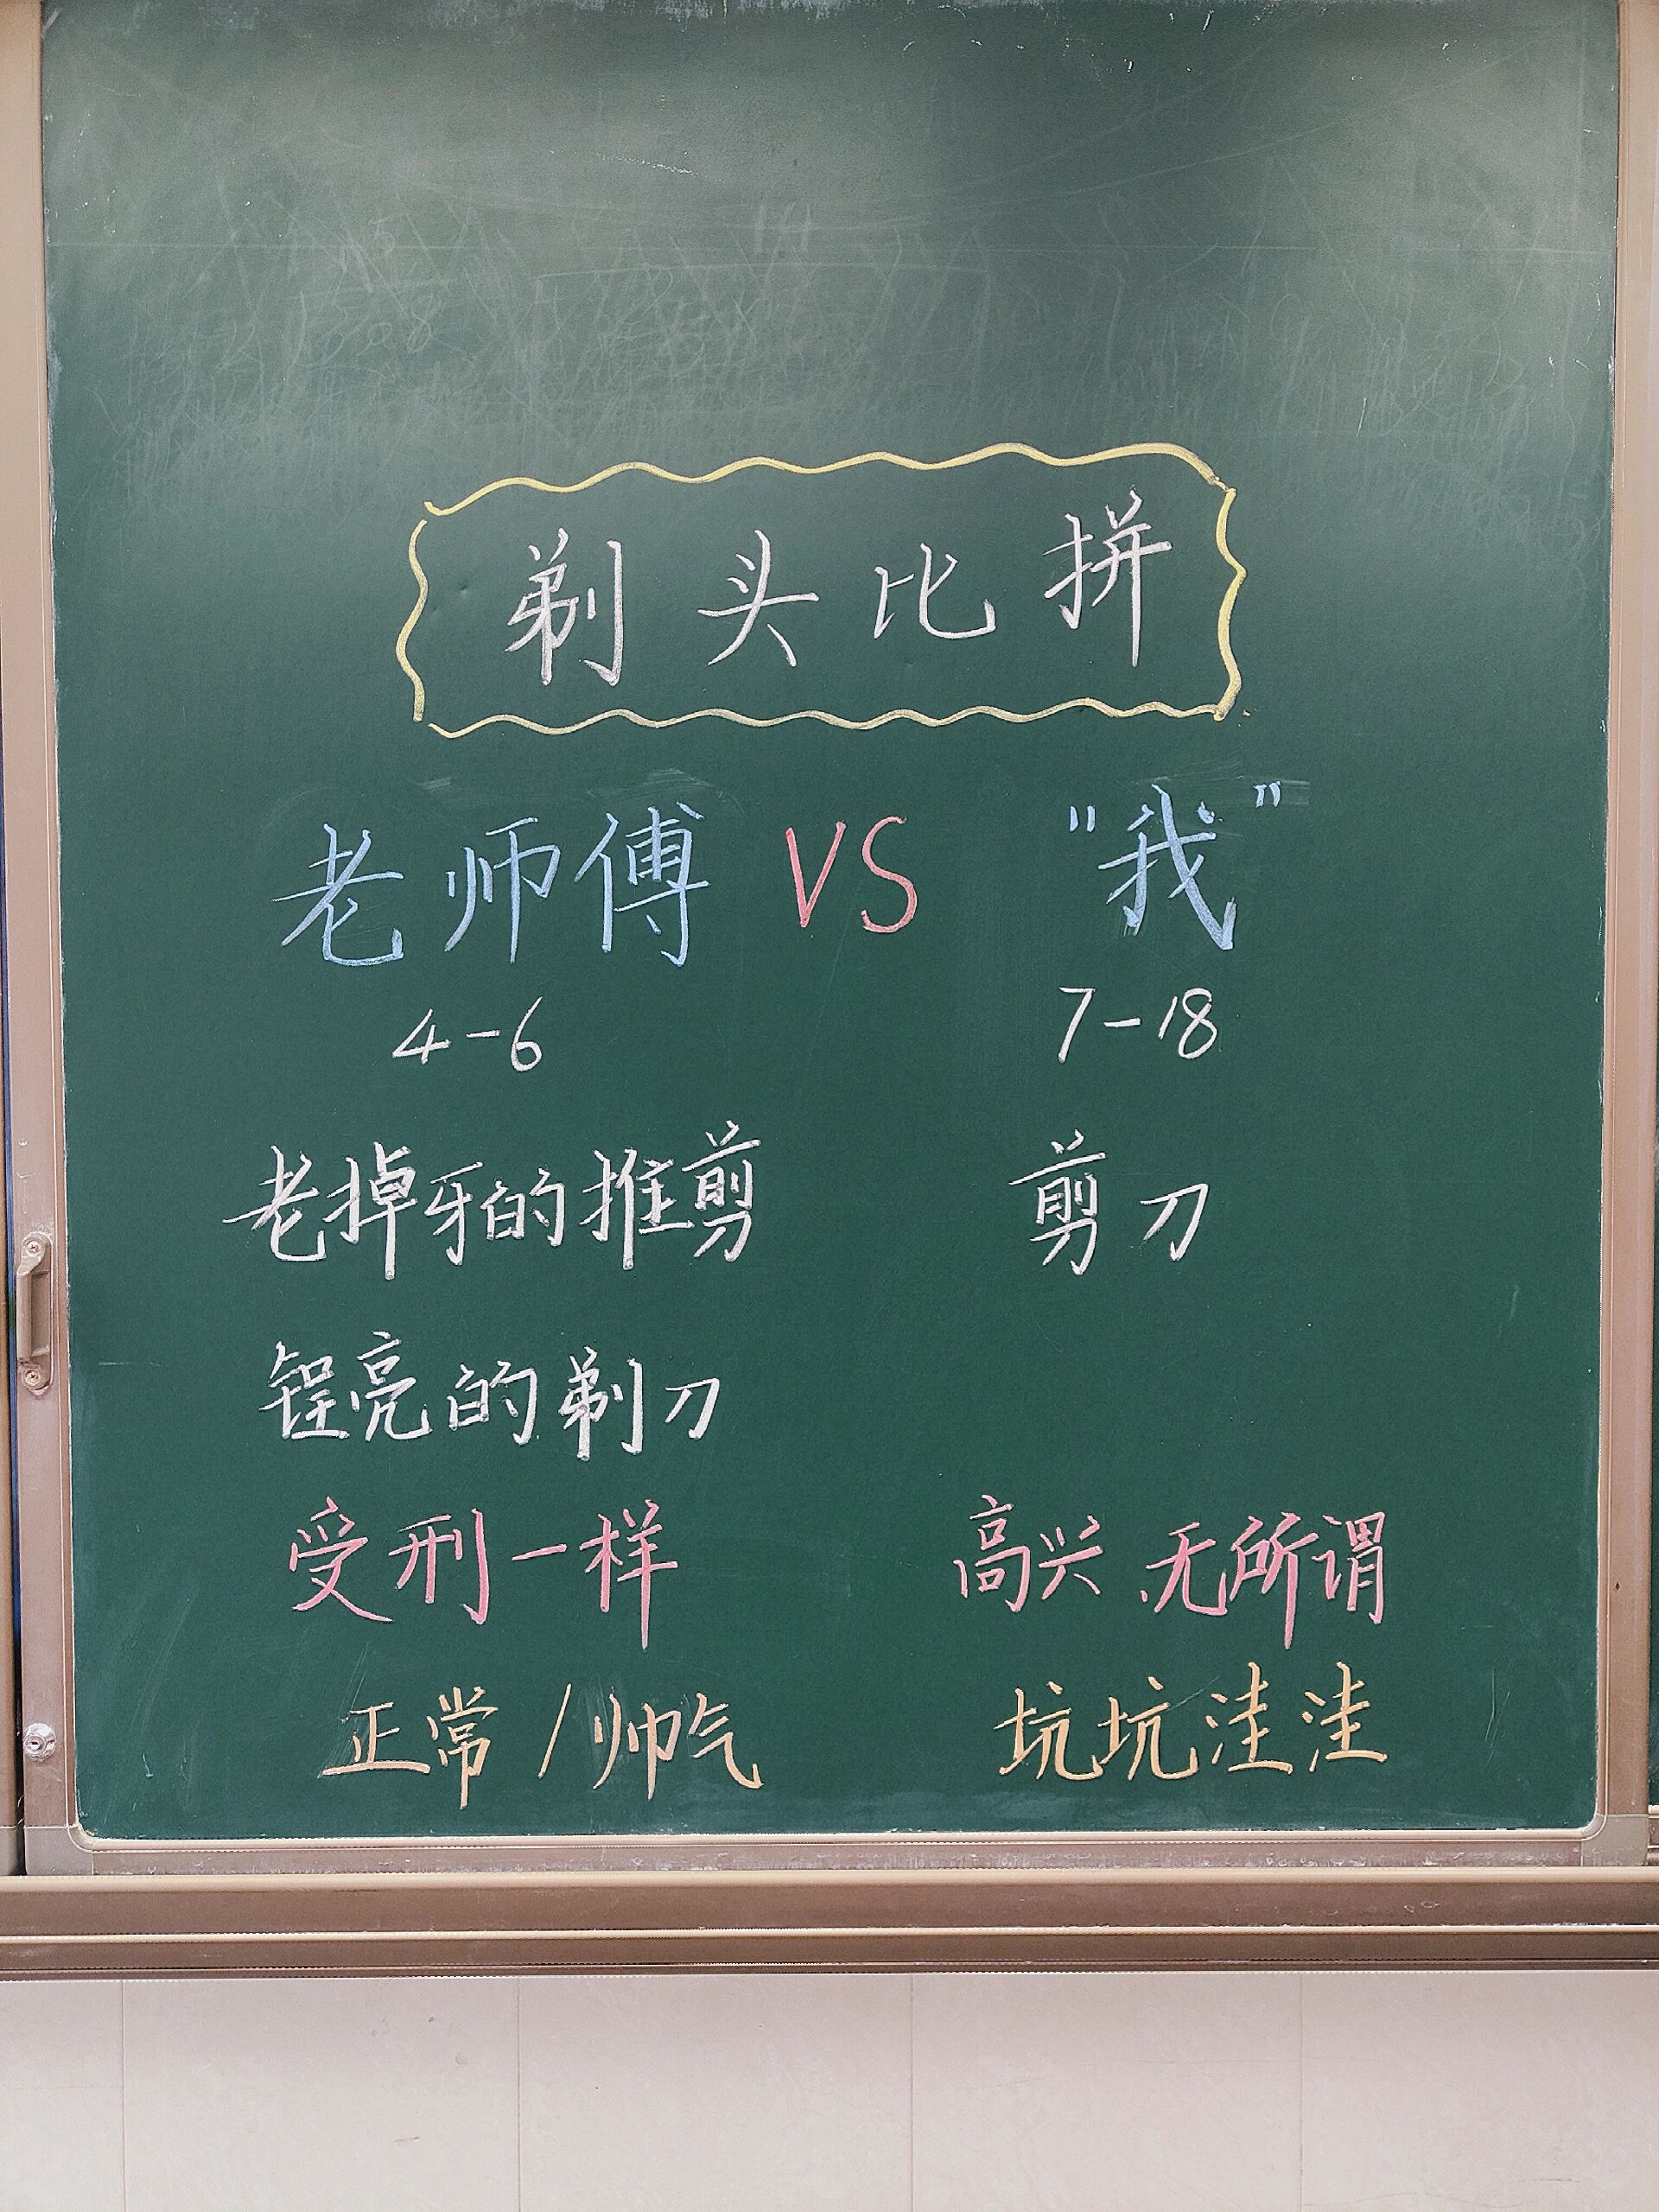 剃头比拼
老师傅 VS "我"
4-6 7-18
老掉牙的推剪 剪刀
锃亮的剃刀
受刑一样 高兴 无所谓
正常/帅气 坑坑洼洼